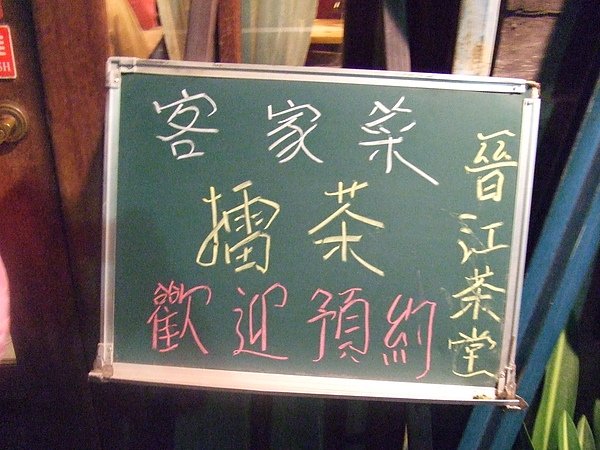 客家菜
擂茶
歡迎預約
晉江茶堂